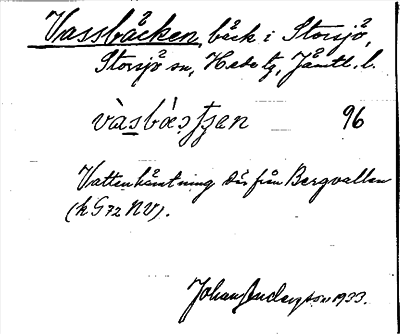 Vassbäcken, bäck i Storsjö,
Storsjö sn, Hede tg, Jämtl. l.
vàsbæ̀stʃen 96
Vattenhämtning där från Bergvallen
(k G 72 NV).
Johan Anderson 1933.